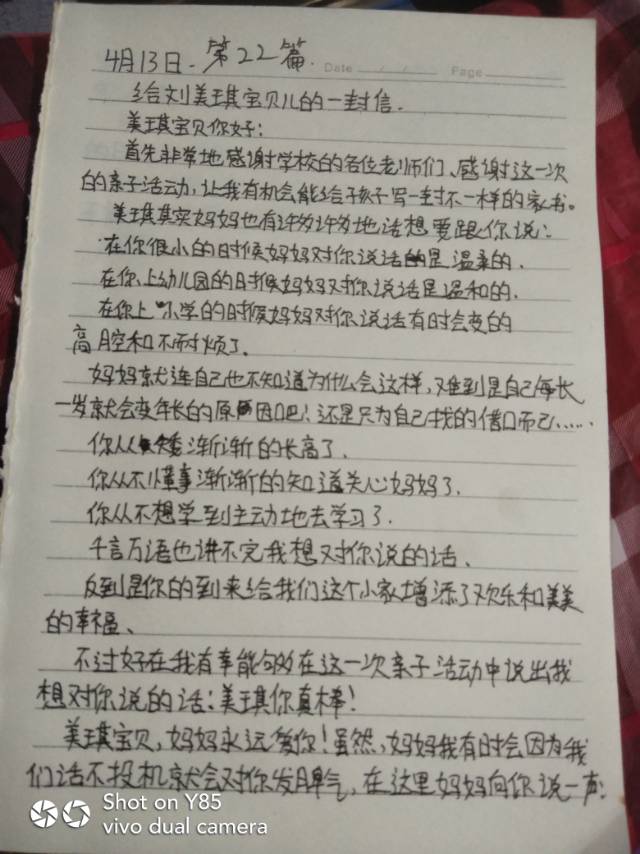 4月13日. 第22篇.
Date Page
给刘美琪宝贝儿的一封信.
美琪宝贝你好:
首先非常地感谢学校的各位老师们、感谢这一次
的亲子活动,让我有机会能给孩子写一封不一样的家书。
美琪其实妈妈也有许多许多地话想要跟你说:
在你很小的时候妈妈对你说话是温柔的.
在你上幼儿园的时候妈妈对你说话是温和的.
在你上小学的时候妈妈对你说话有时会变的
高腔和不耐烦了.
妈妈就连自己也不知道为什么会这样,难到是自己每长
一岁就会变年长的原因吧!还是只为自己找的借口而已......
你从矮渐渐的长高了.
你从不懂事渐渐的知道关心妈妈了.
你从不想学到主动地去学习了.
千言万语也讲不完我想对你说的话、
反到是你的到来给我们这个小家增添了欢乐和美美
的幸福、
不过好在我有幸能够在这一次亲子活动中说出我
想对你说的话:美琪你真棒!
美琪宝贝,妈妈永远爱你!虽然,妈妈我有时会因为我
们话不投机就会对你发脾气,在这里妈妈向你说一声:
Shot on Y85
vivo dual camera